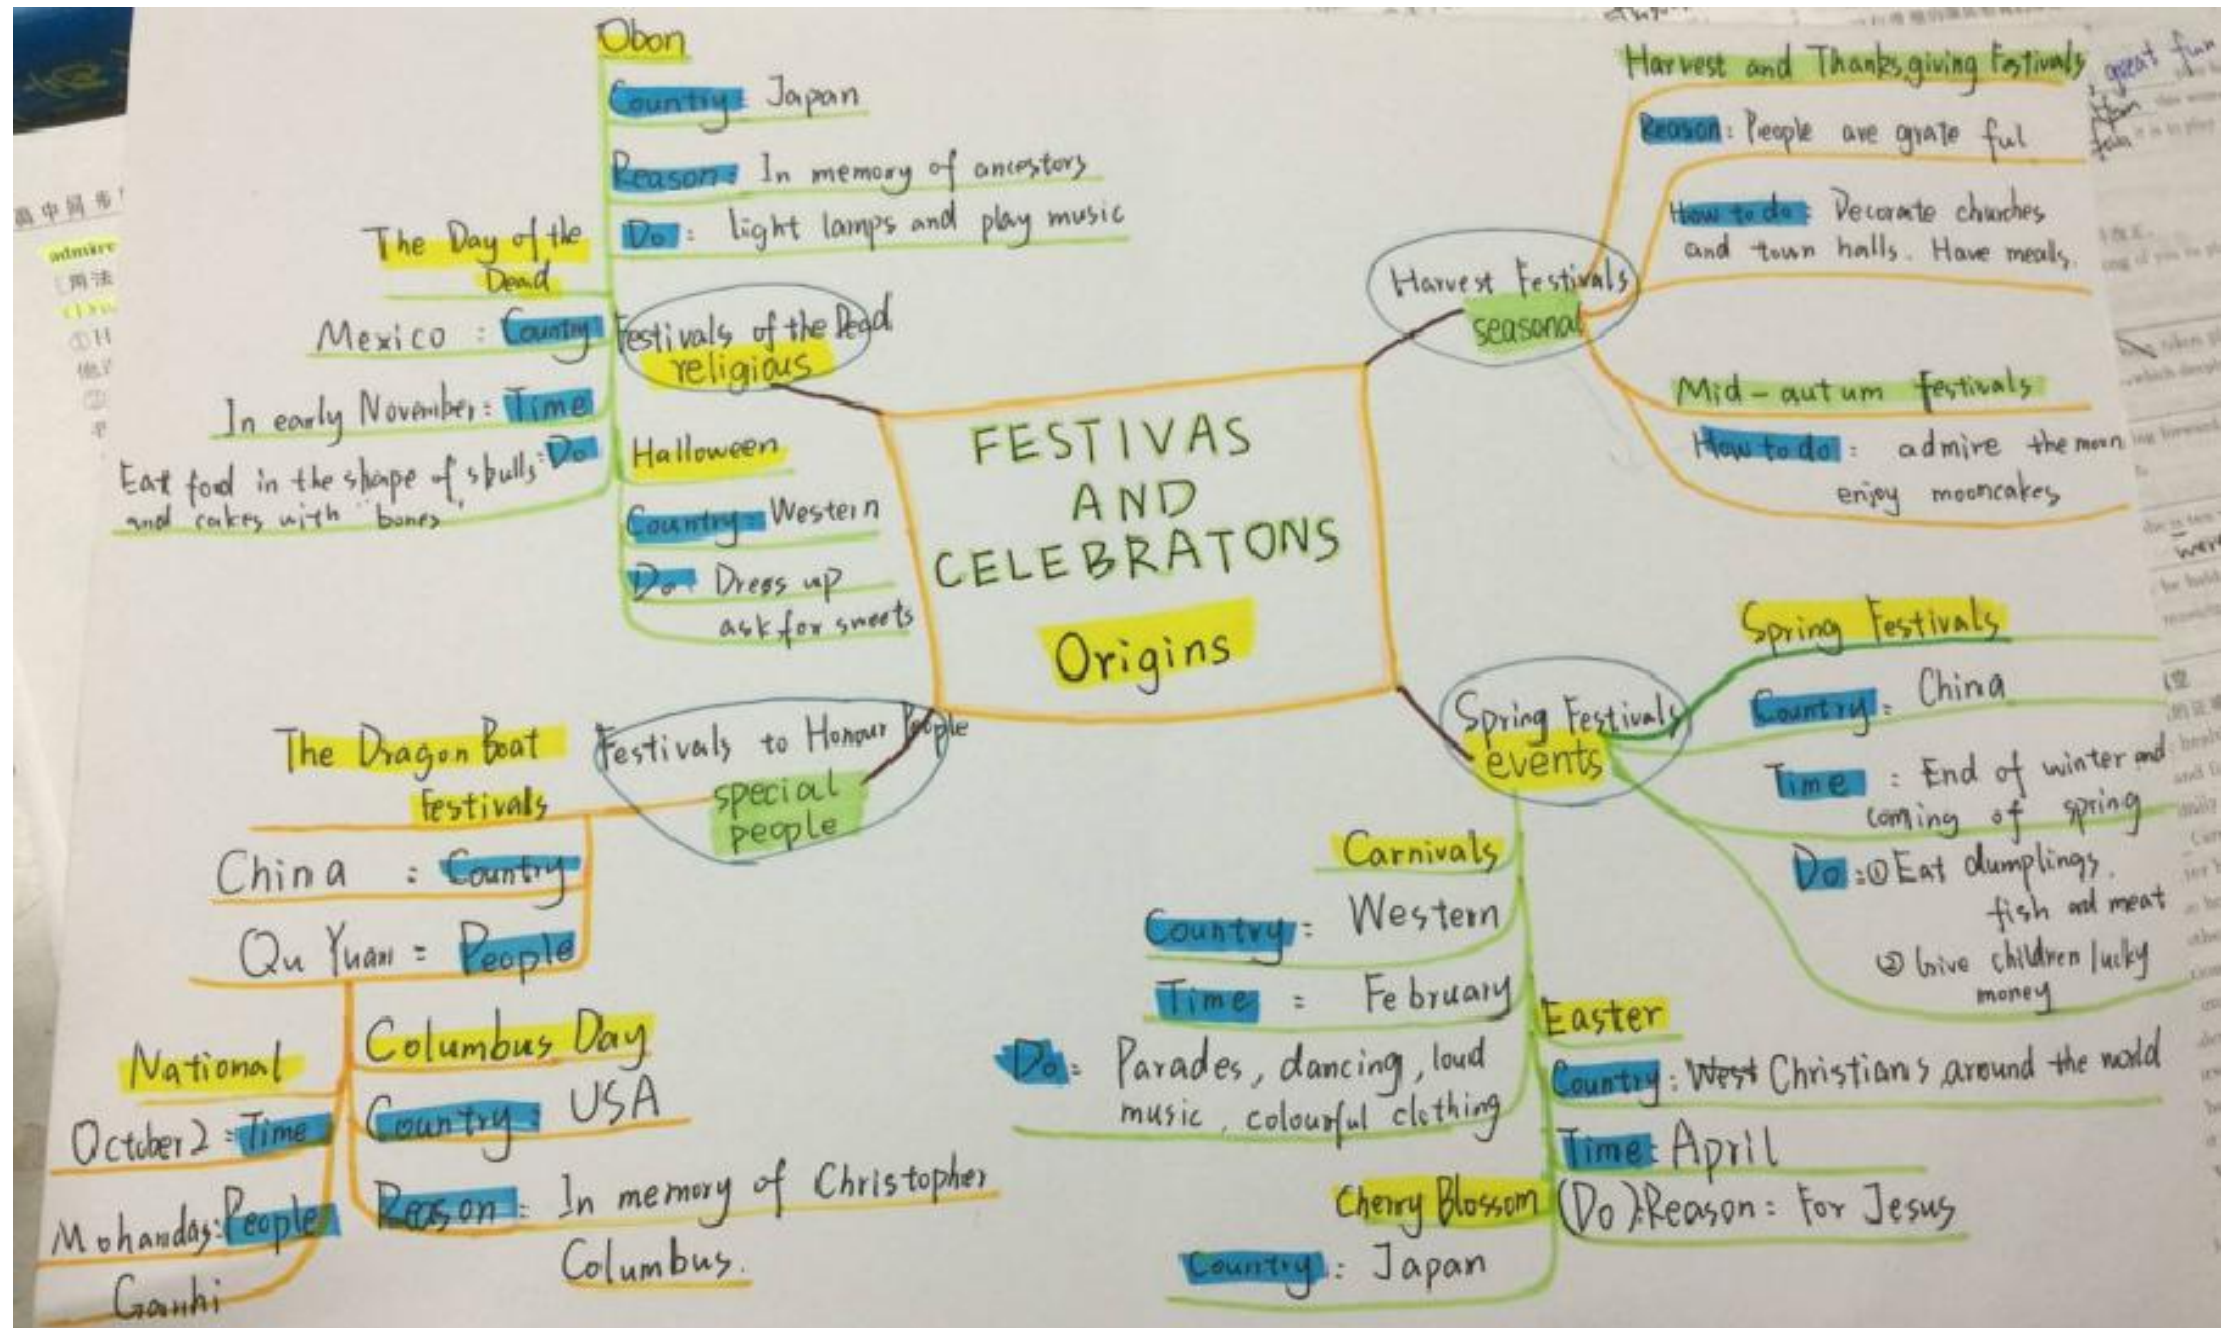 FESTIVAS
AND
CELEBRATONS
Origins
Obon
Country: Japan
Reason: In memory of ancestors
Do: light lamps and play music
The Day of the
Dead
Mexico : Country
In early November: Time
Eat food in the shape of sbulls: Do
and cakes with "bones"
Festivals of the Dead
religious
Halloween
Country: Western
Do: Dress up
ask for sweets
Harvest Festivals
seasonal
Harvest and Thanksgiving Festivals
Reason: People are grate ful
How to do: Decorate churches
and town halls. Have meals.
Mid-autum festivals
How to do: admire the moon
enjoy mooncakes
Festivals to Honour People
special
people
The Dragon Boat
festivals
China : Country
Qu Yuan : People
National
October 2 : Time
Mohandas: People
Ganhi
Columbus Day
Country: USA
Reason: In memory of Christopher
Columbus.
Spring Festivals
events
Spring Festivals
Country: China
Time : End of winter and
coming of spring
Do: ① Eat dumplings.
fish and meat
② Give children lucky
money
Carnivals
Country: Western
Time : February
Do: Parades, dancing, loud
music, colourful clothing
Easter
Country: West Christians around the world
Time: April
(Do): Reason: For Jesus
Cherry Blossom
Country: Japan
高中同步
admire
great fun